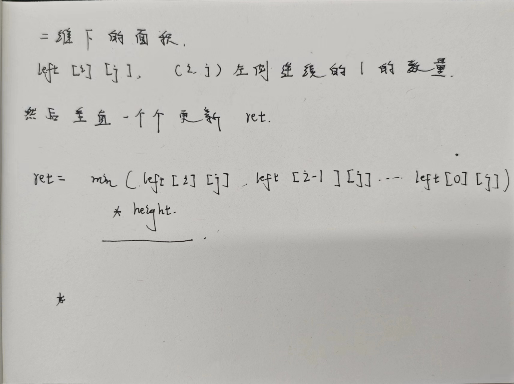 二维下的面积.
left [i] [j], (i, j) 左侧连续的 1 的数量.
然后垂直一个个更新 ret.
ret = min ( left [i] [j] , left [i-1] [j] ... left [0] [j] )
* height.
*